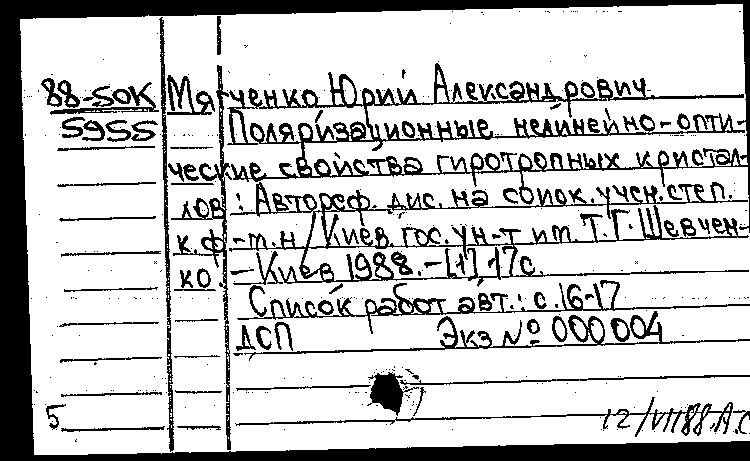 88-50К Мягченко Юрий Александрович.
5955 Поляризационные нелинейно-опти-
ческие свойства гиротропных кристал-
лов: Автореф. дис. на соиск. учен. степ.
к.ф.-м.н / Киев. гос. ун-т им. Т.Г. Шевчен-
ко. - Киев 1988. - [1], 17с.
Список работ авт.: с. 16-17
ДСП Экз № 000004
5
12/VII88.А.С